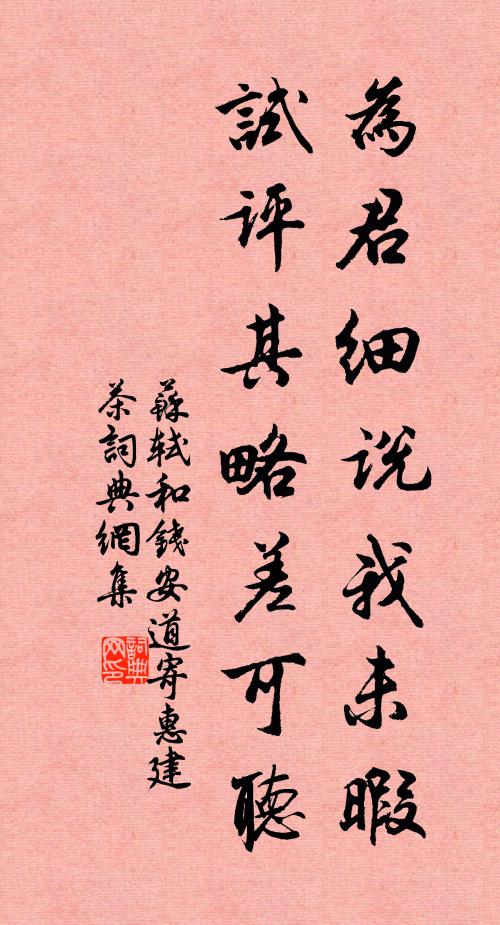 為君細說我未暇
試評其略差可聽
蘇軾和錢安道寄惠建
茶詞典網集
詞典
网印